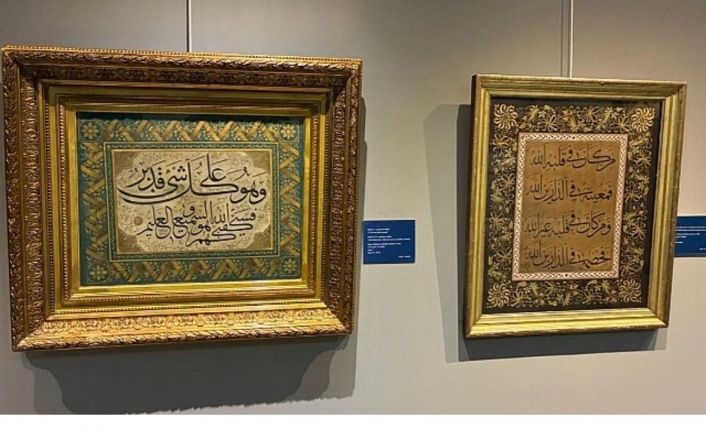 وهو على كل شئ قدير
فسيكفيكهم الله وهو السميع العليم
من كان في قلبه الله
فمعينه في الدارين الله
ومن كان في قلبه غير الله
فخصمه في الدارين الله